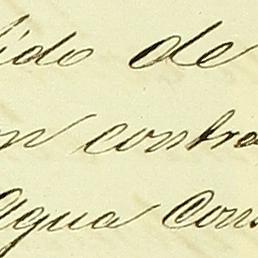 ido de
n contra
agua Con